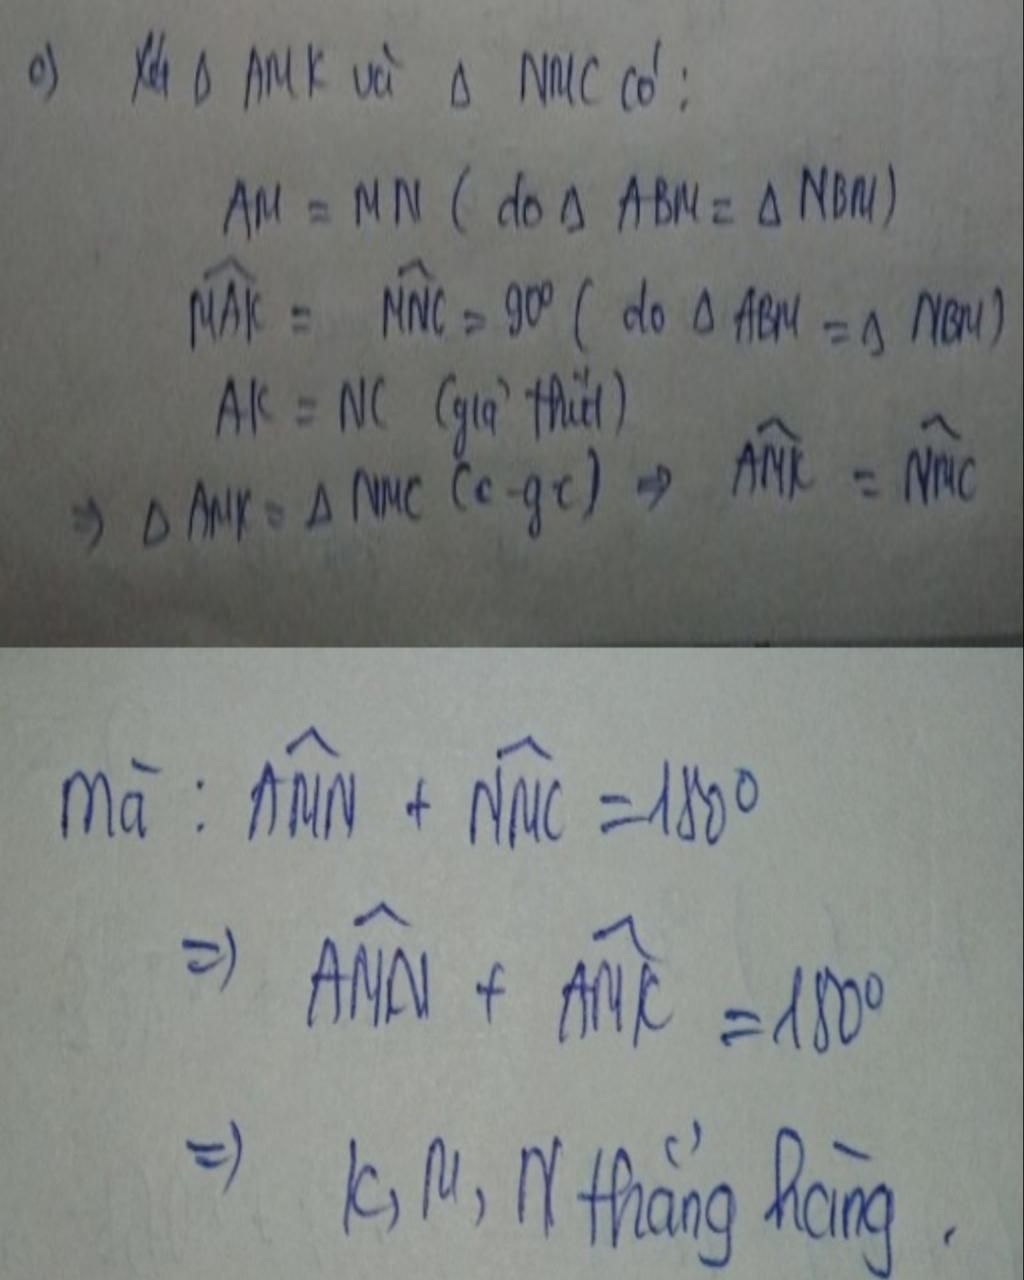 c) Xét Δ AMK và Δ NMC có :
AM = MN ( do Δ ABM = Δ NBM)
$\widehat{MAK}$ = $\widehat{MNC}$ = 90° ( do Δ ABM = Δ NBM)
AK = NC (giả thiết)
⇒ Δ AMK = Δ NMC (c-g-c) ⇒ $\widehat{AMK}$ = $\widehat{NMC}$
Mà : $\widehat{AMN}$ + $\widehat{NMC}$ = 180°
=> $\widehat{AMN}$ + $\widehat{AMK}$ = 180°
=> K, M, N thẳng hàng .